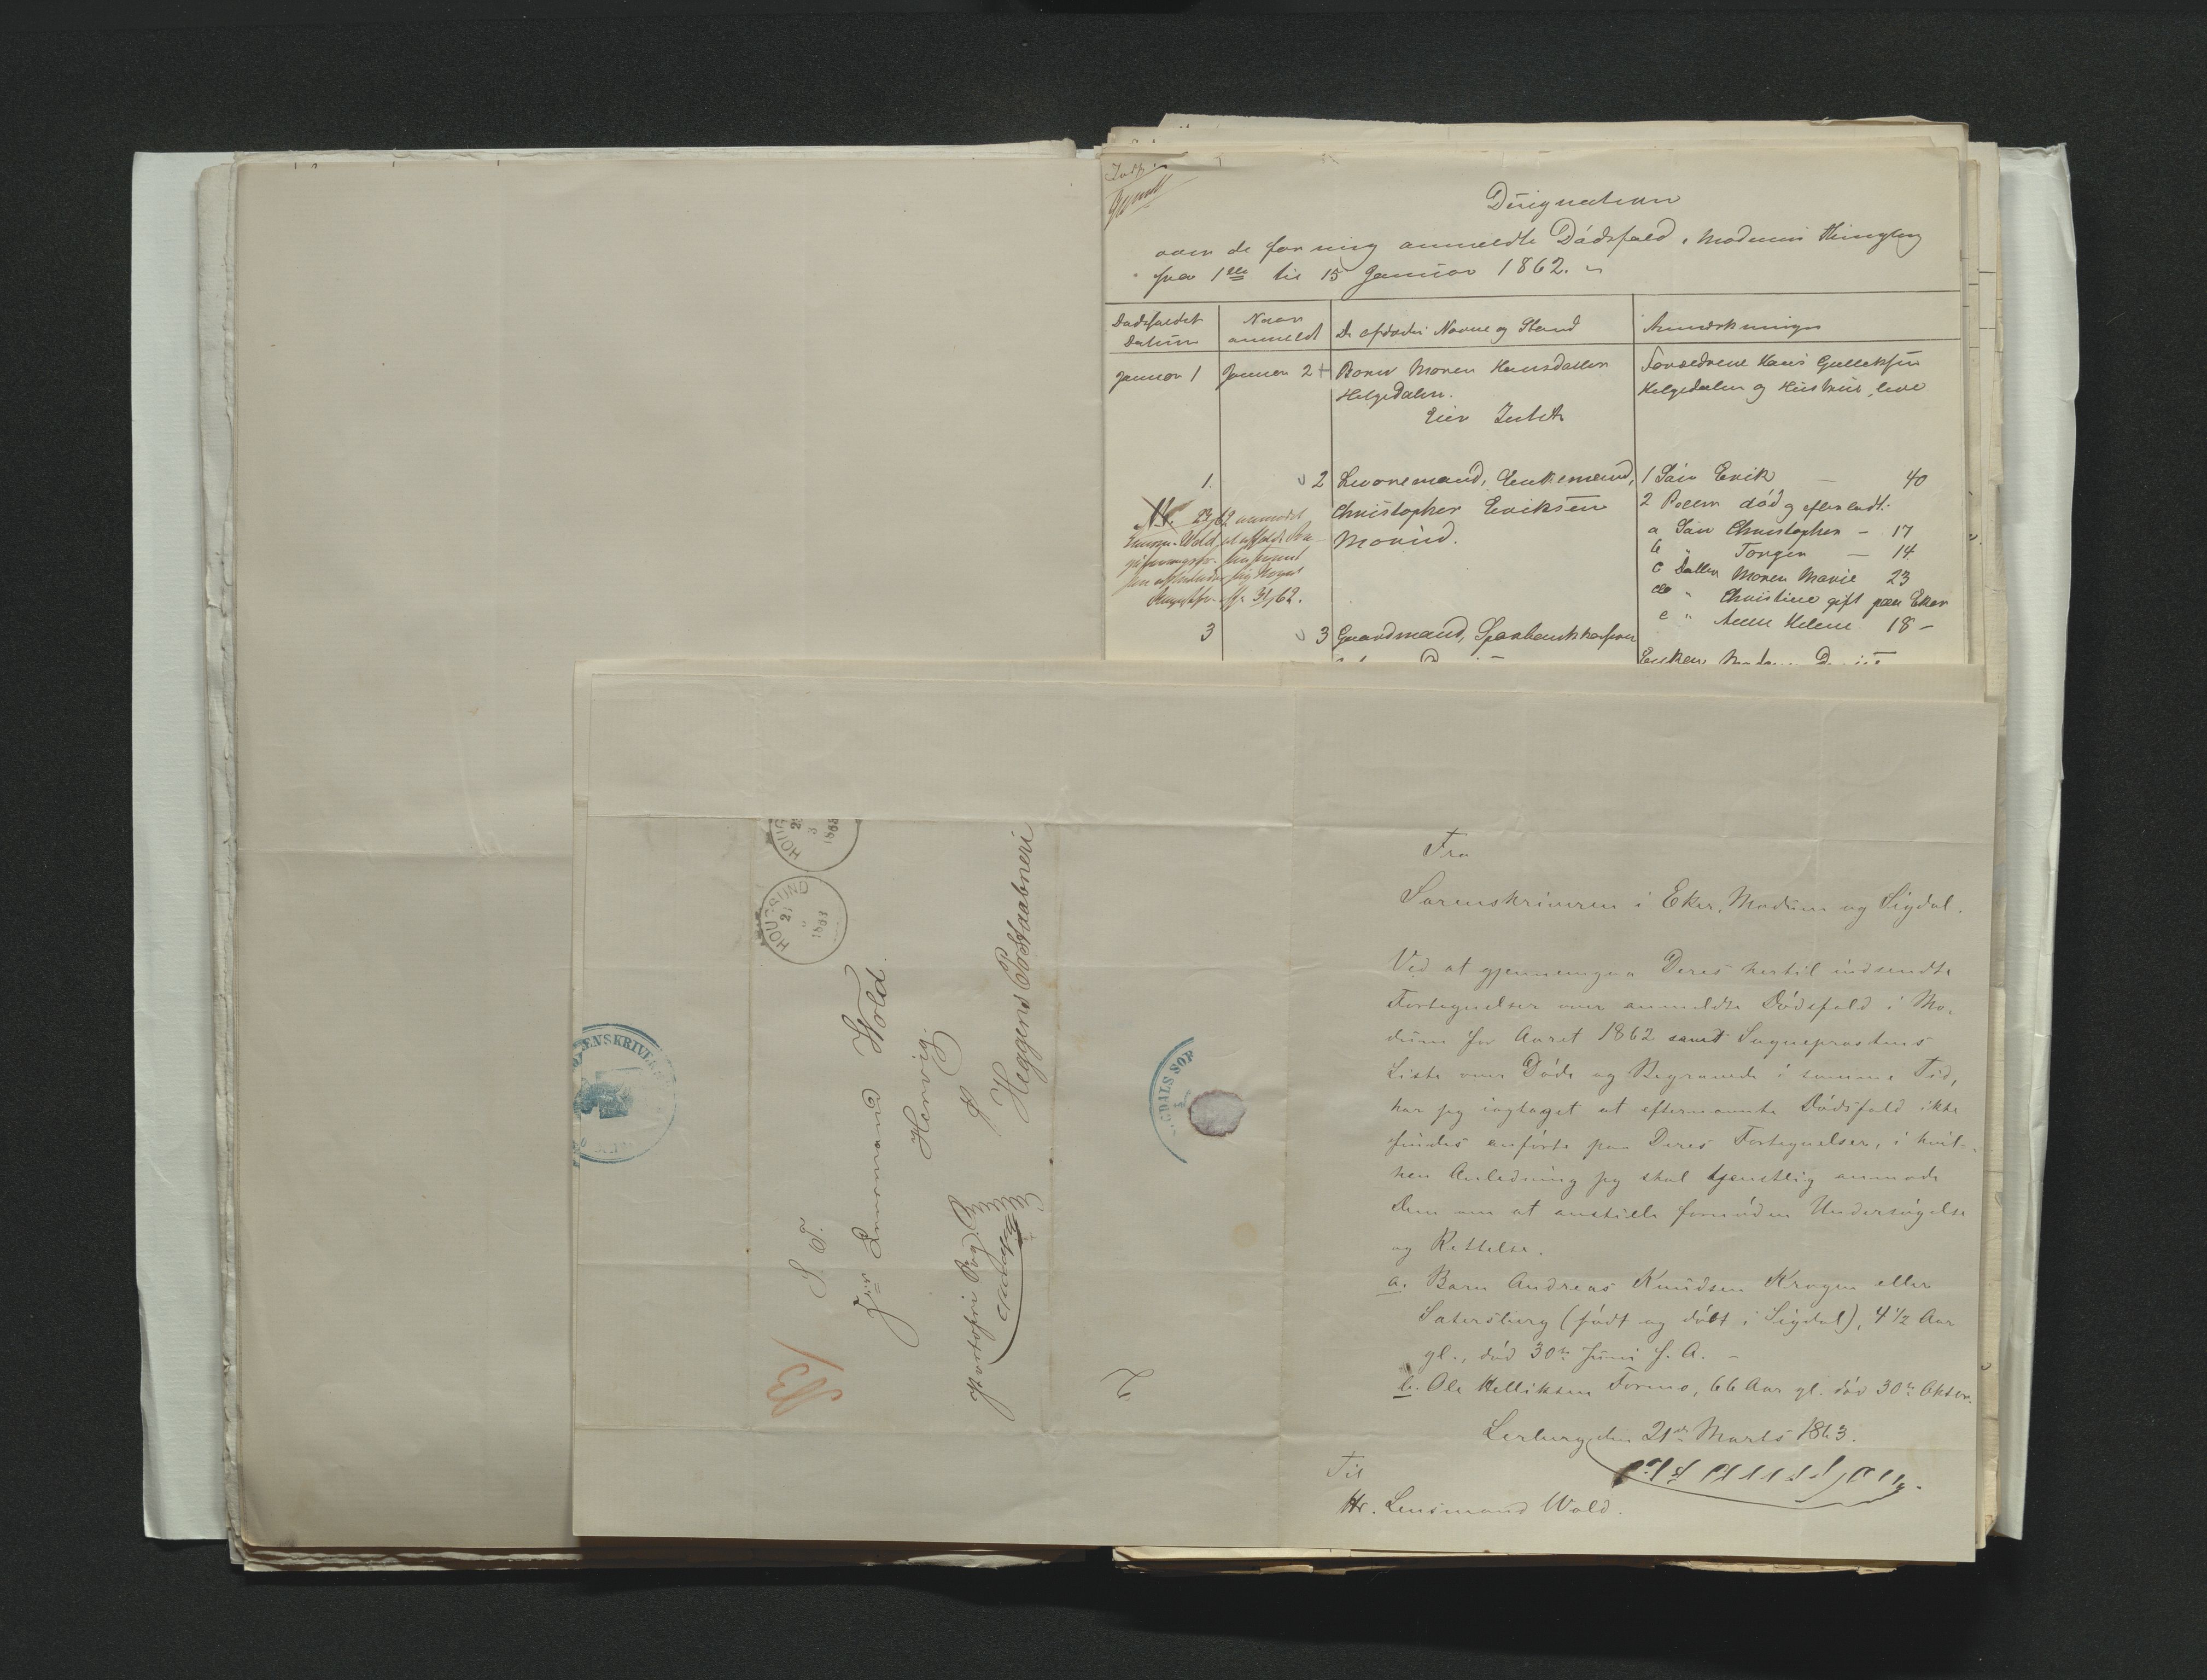 Designation
over de for mig anmeldte Dödsfald i Modums Thinglag
fra 1ste til 15 Januar 1862.
Dødsfaldets Datum
Naar anmeldt
De afdødes Navne og Stand
Anmærkninger
Januar 1 Januar 2 Barn Maren Hansdatter Helgedalen.
Eier Intet
Forældrene Hans Gulleksen
Helgedalen og Hustrue, leve
1. 2 Livøremand, Enkemand,
Christopher Eriksen
Morud.
1 Søn Erik 40
2 død og efterladt:
a Søn Christopher - 17
b " Torger - 14
c Datter Maren Marie 23
d " Christine gift paa Eker
e " Anne Helene 18 -
3 3 Gaardmand, Sparbankkasserer
Enken, Madam
HOUGSUND
3
1863
HOUGSUND
21
1863
S. T.
Hr Lensmand Wold.
Hervig.
Heggens Postaabneri
Portofri Sag.
SORENSKRIVE
GDALS SOR
Fra
Sorenskriveren i Eker, Modum og Sigdal.
Ved at gjennemgaa Deres hertil indsendte
Fortegnelser over anmeldte Dödsfald i Mo-
dum for Aaret 1862 samt Sogneprestens
Liste over Döde og Begravede i samme Tid,
har jeg iagtaget at efternævnte Dödsfald ikke
findes anförte paa Deres Fortegnelser, i hvil-
ken Anledning jeg skal tjenstlig anmode
Dem om at anstille fornöden Undersögelse
og Rettelse.
a. Barn Andreas Knudsen Kragen eller
Satersberg (födt og döbt i Sigdal), 4 1/2 Aar
gl., död 30te Juni f. A. -
b. Ole Helliksen Formo, 66 Aar gl. död 30te Oktbr.
Lerberg den 21de Marts 1863.
Til
Hr. Lensmand Wold.